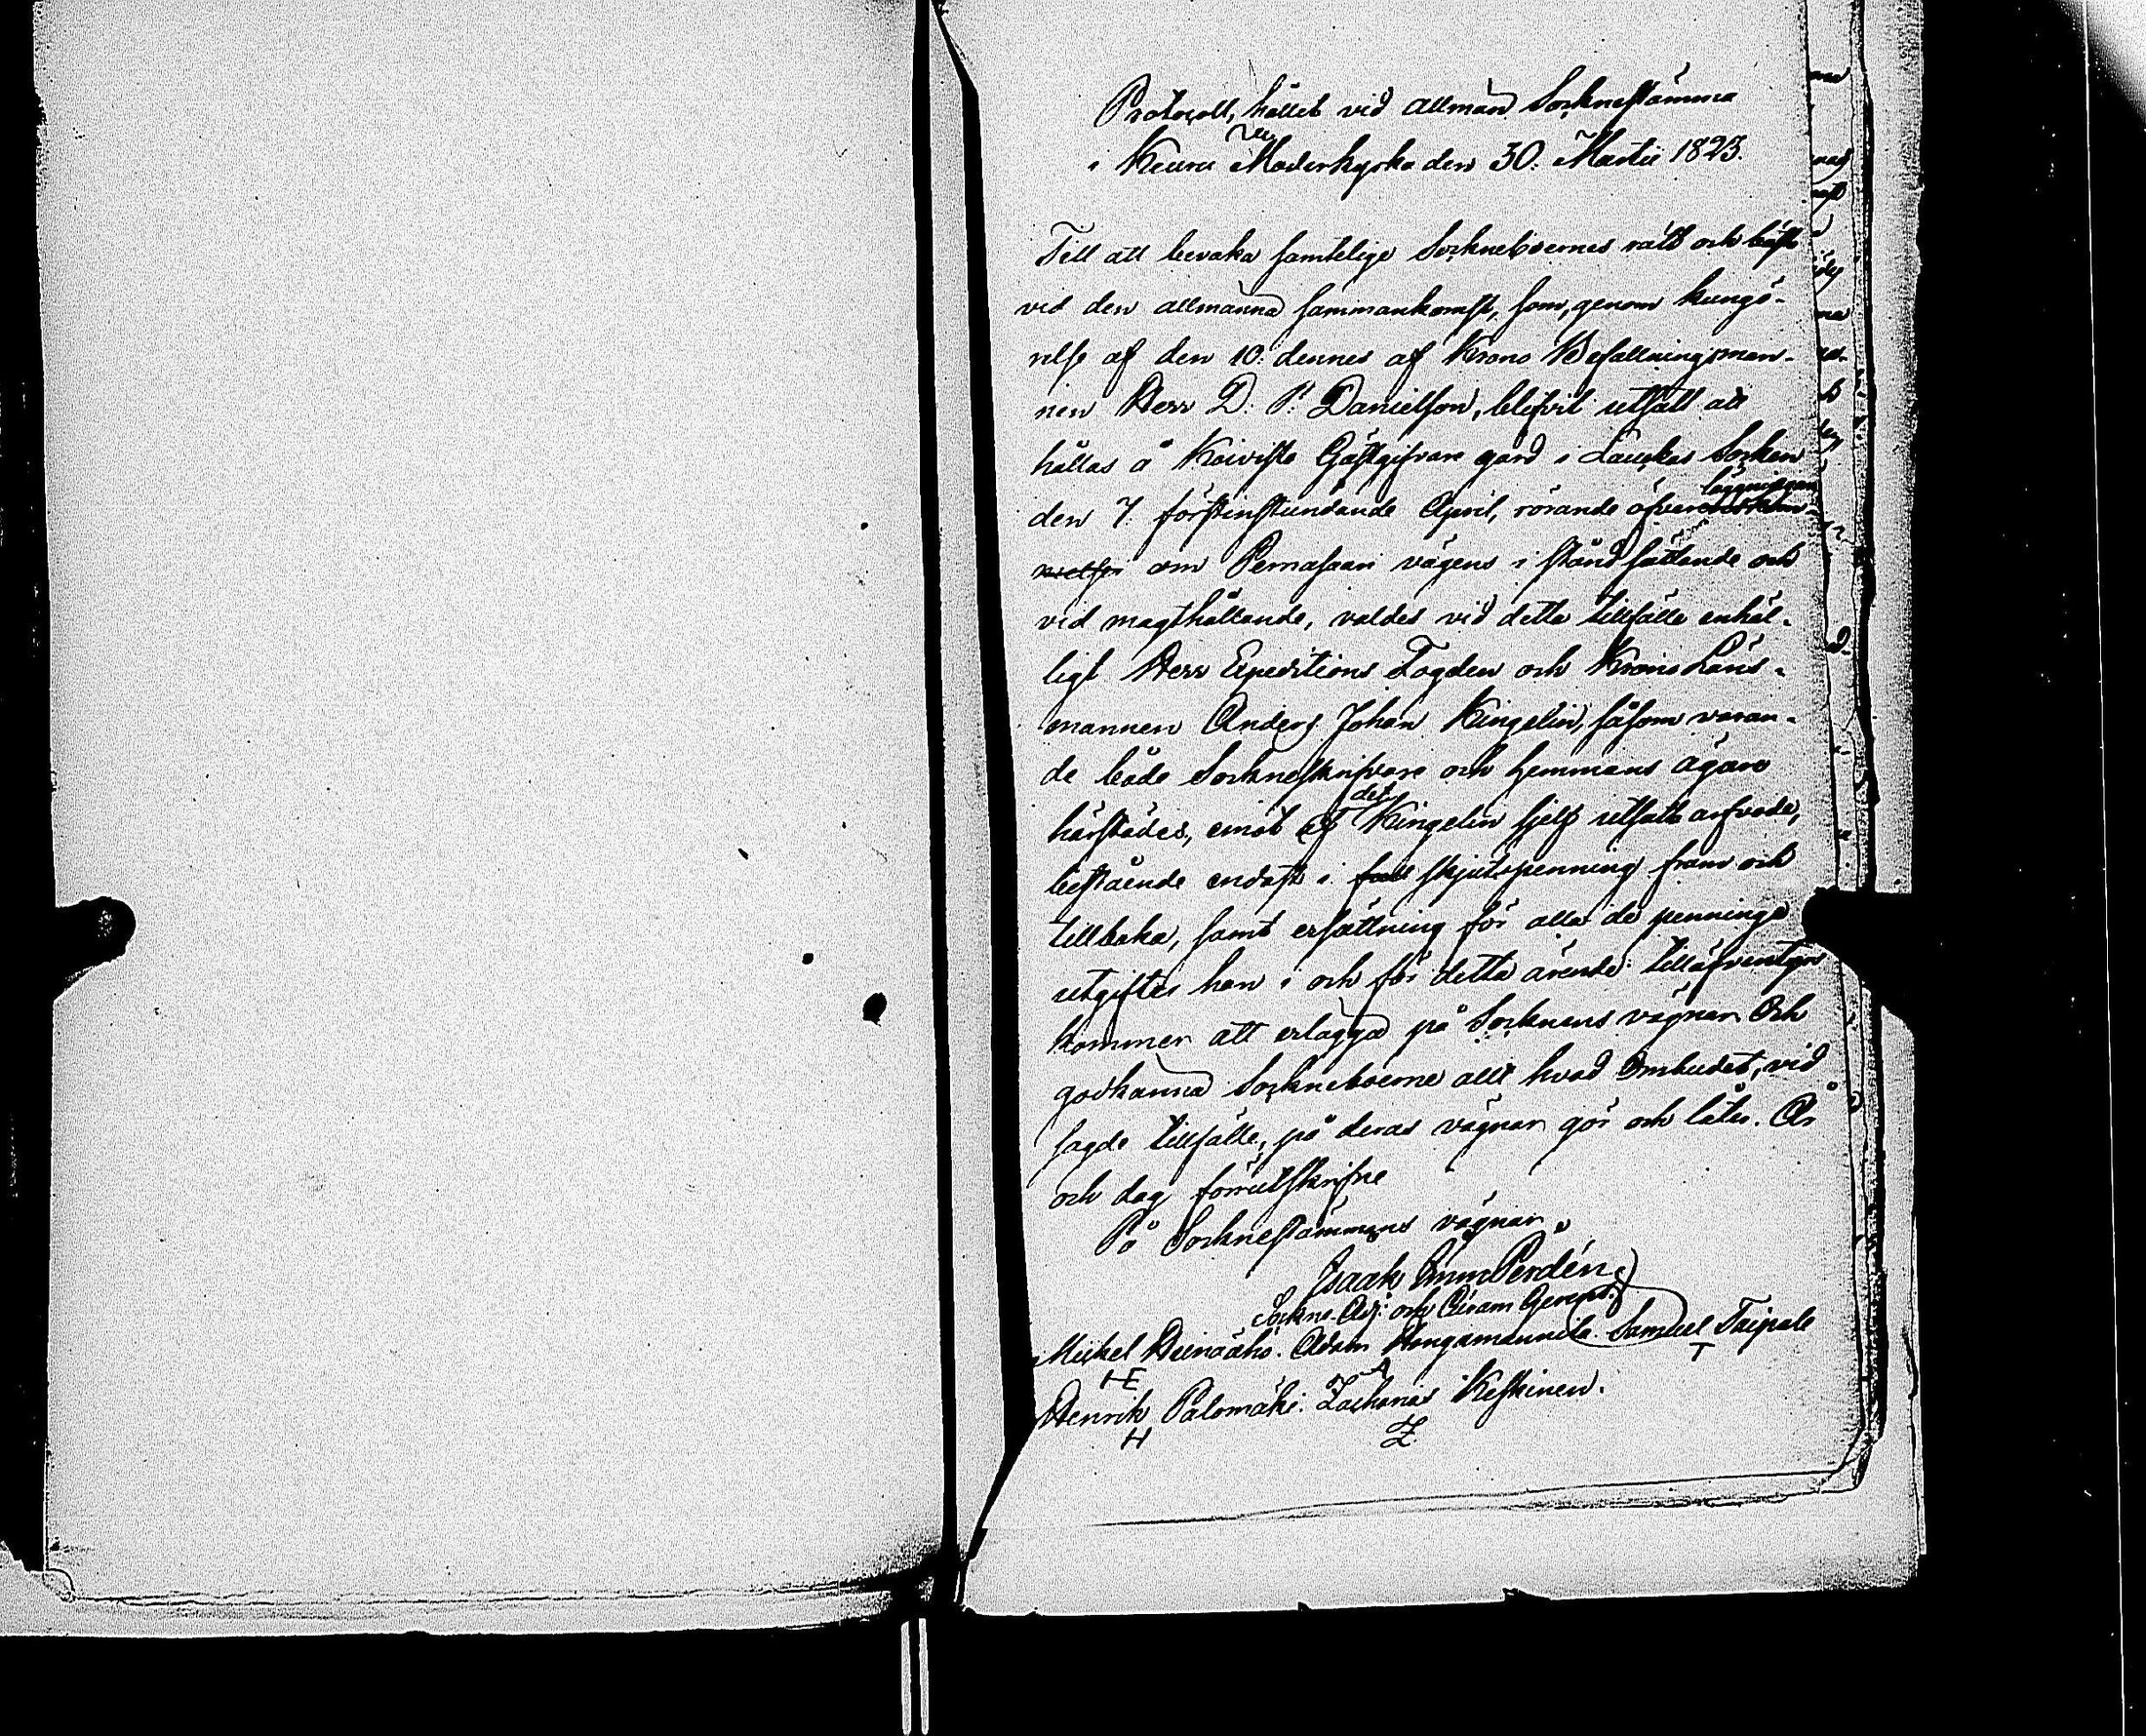 Protocoll, hållet vid allmän Sockne stämma
i Keuru Moderkyrka den 30. Martii 1823.
Till att bevaka samtelige Sockneboernes rätt och bästa
vid den allmänna sammankomst, som, genom kungö-
relse af den 10. dennes af Krono Befallningsman-
nen Herr D. P. Danielson, blifvit utsatt att
hållas å Koivisto Gästgifvare gård i Laukas Socken
den 7. förstinstundande April, rörande öfverläggningen
om Pernasaari vägens i stånd sättande och
vid magthållande, valdes vid detta tillfälle enhäl-
ligt Herr Expeditions Fogden och Krono Läns-
mannen Anders Johan Kingelin, såsom varan-
de både Sockneskrifvare och hemmans ägare
härstädes, emot det af Kingelin sjelf utsatt arfvode,
bestående endast i skjutspenning fram och
tillbaka, samt ersättning för alla de penninge
utgifter han i och för detta ärende tilläfventyrs
kommer att erlägga på Socknens vägnar. Och
godkänna Sockneboerne allt hvad Ombudet, vid
sagde tillfälle, på deras vägnar gör och låter. År
och dag förrutskrifne
På Socknestämmans vägnar
Isaak Imm. Perdén
Sockne Adj. och
Mickel Heinäaho. Adam Hongamannila. Samuel Taipale
HE A T
Henrik Palomäki. Zacharias Keskinen.
H Z